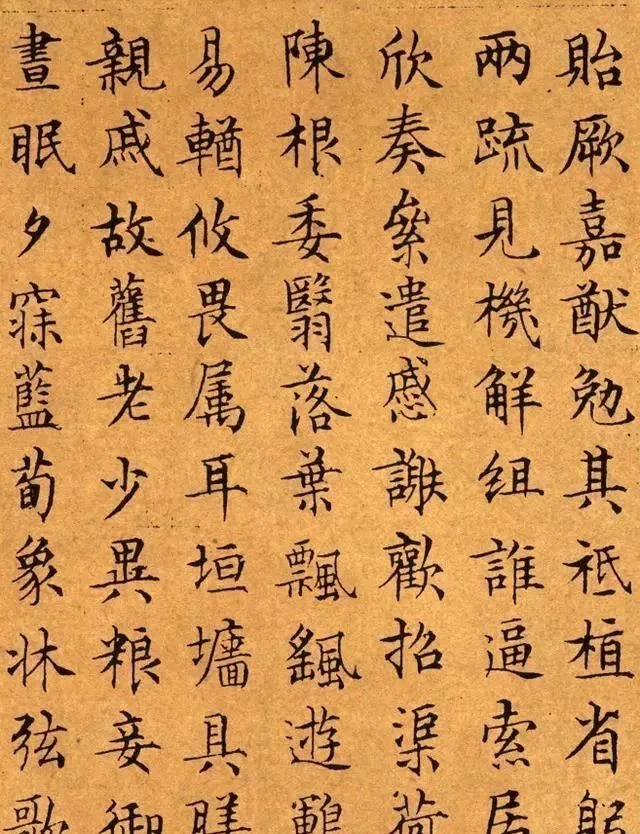 貽厥嘉猷勉其祗植省躬
兩疏見機觧組誰逼索居
欣奏絫遣慼謝歡招渠荷
陳根委翳落葉飄颻遊鵾
易輶攸畏属耳垣墻具膳
親戚故舊老少異粮妾御
晝眠夕寐藍荀象牀弦歌